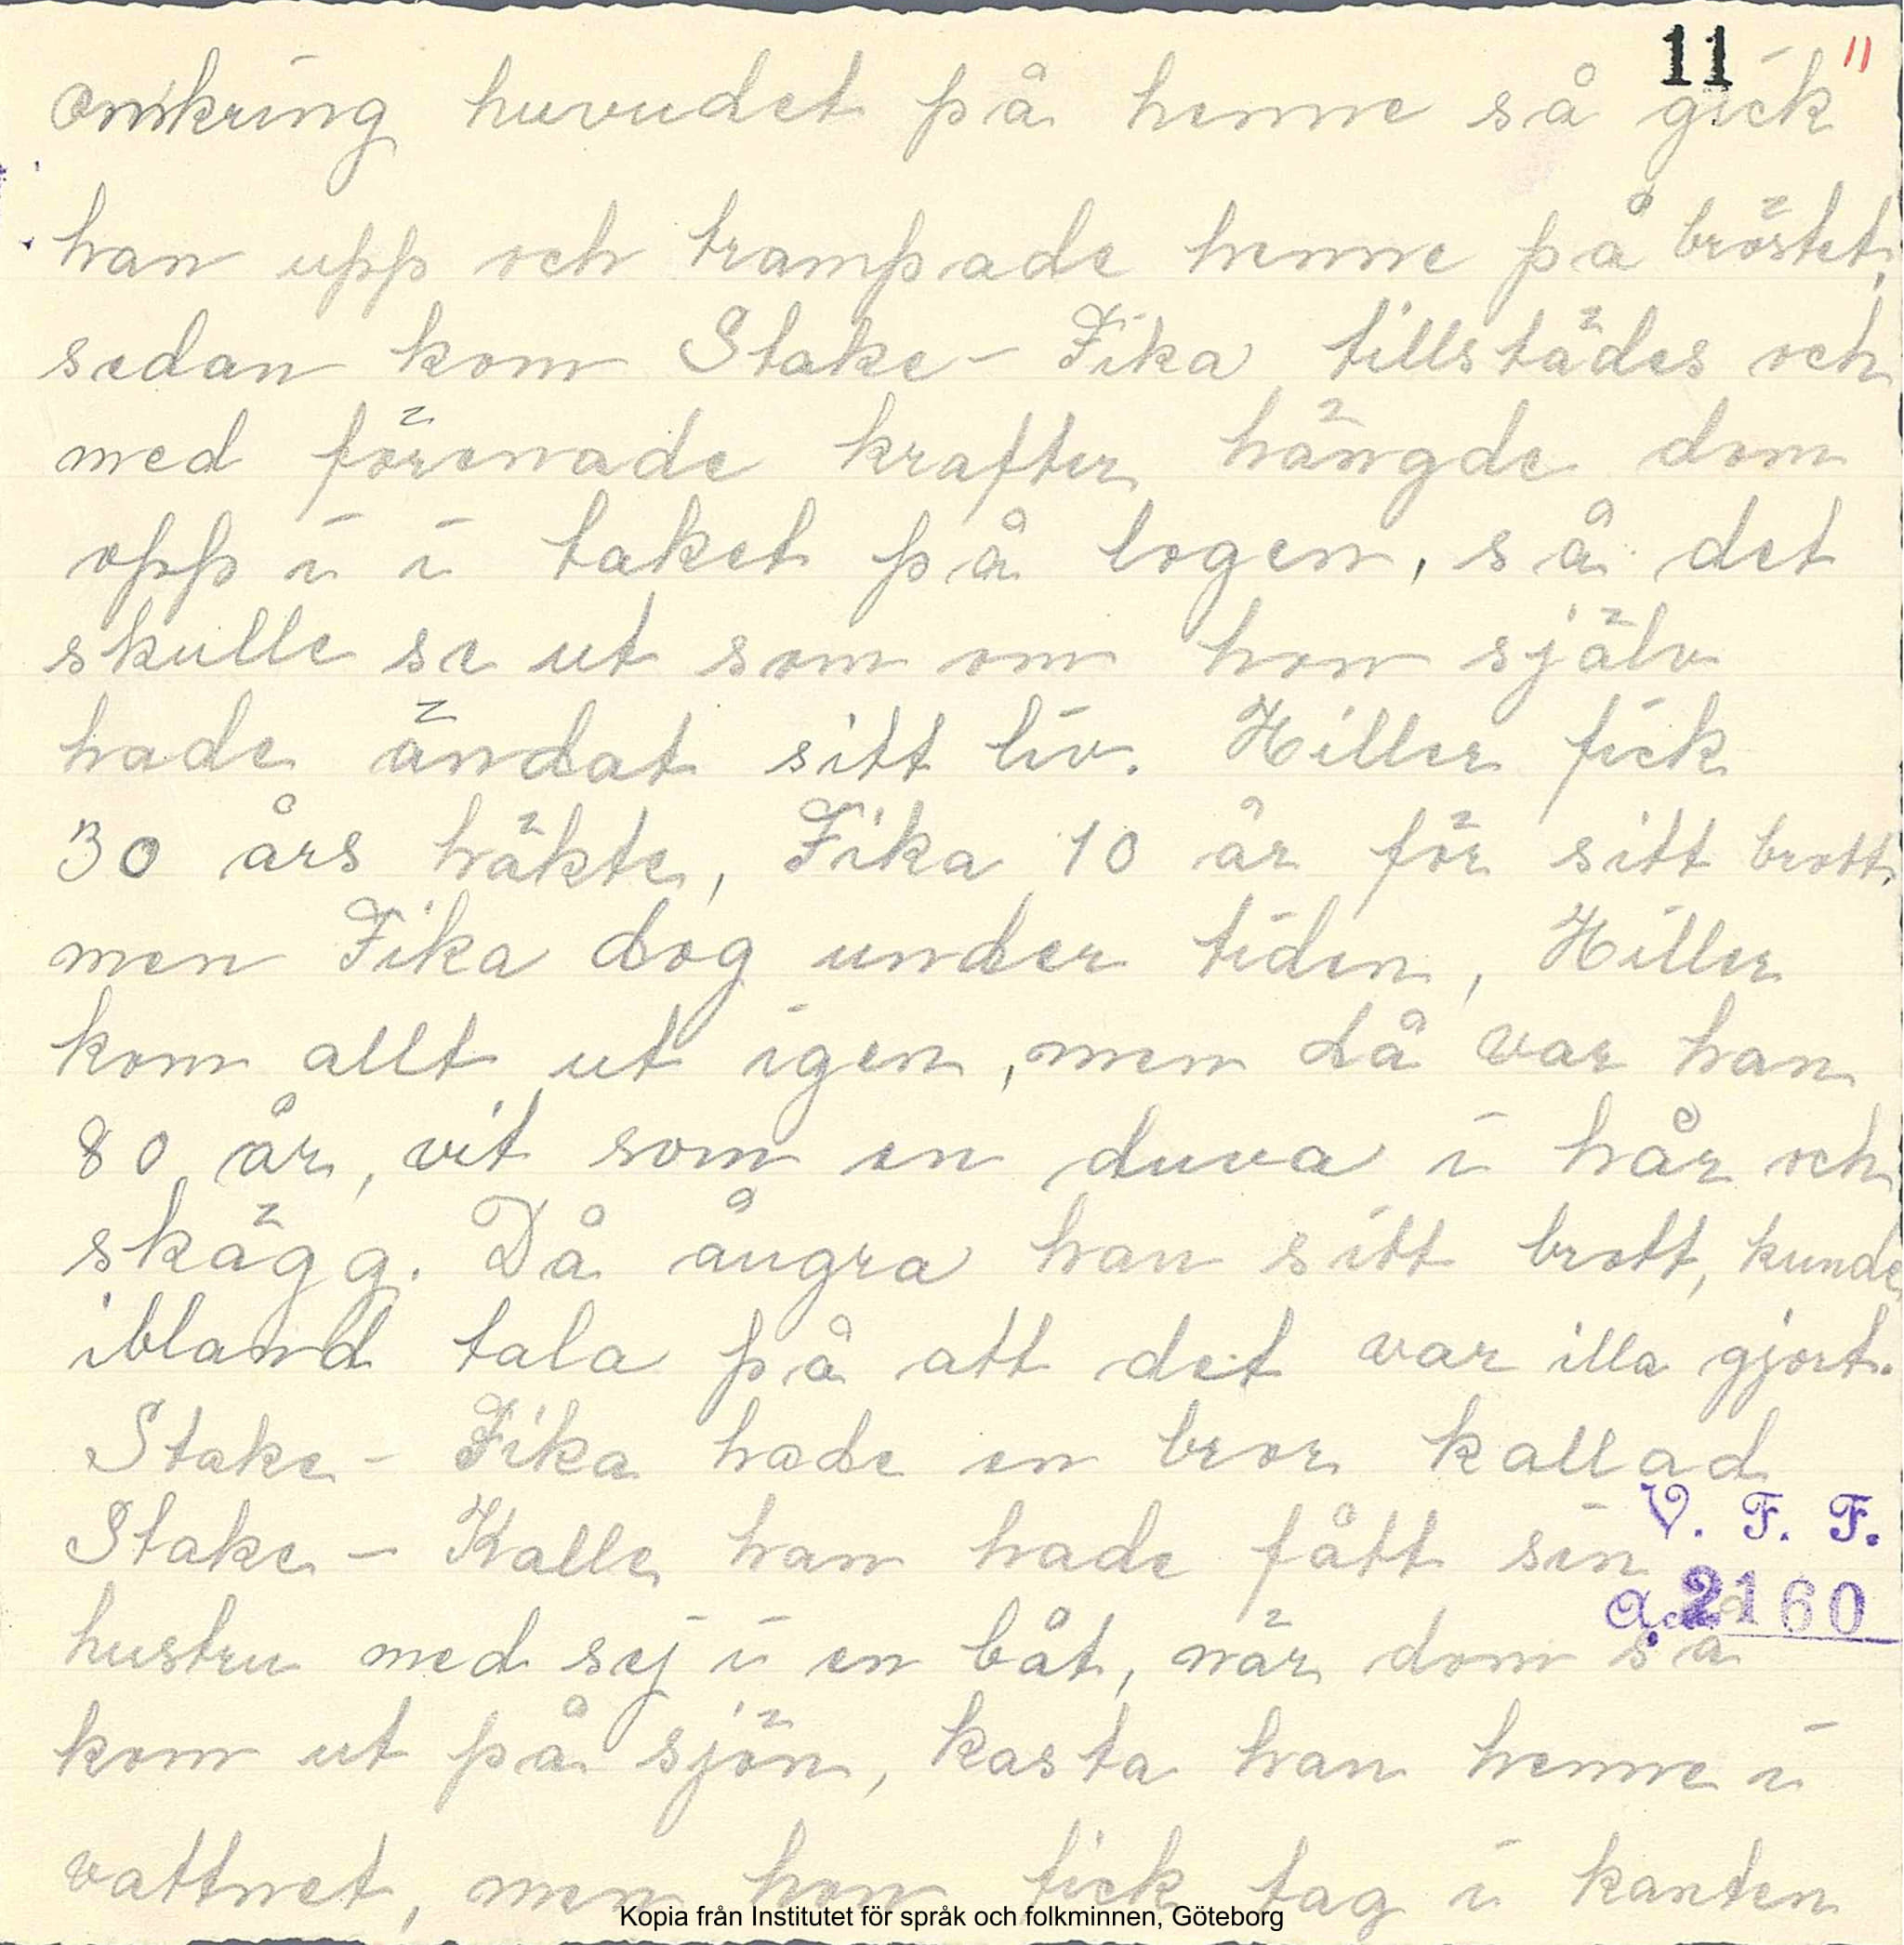 11 11
omkring huvudet på henne så gick
han upp och trampade henne på bröstet,
sedan kom Stake- Fika tillstädes och
med förenade krafter hängde dom
opp i i taket på logen, så det
skulle se ut som om hon själv
hade ändat sitt liv. Hiller fick
30 års häkte, Fika 10 år för sitt brott,
men Fika dog under tiden, Hiller
kom allt ut igen, men då var han
80 år, vit som en duva i hår och
skägg. Då ångra han sitt brott, kunde
ibland tala på att det var illa gjort.
Stake- Fika hade en bror kallad
Stake- Kalle han hade fått sin
V. F. F.
2160
hustru med sej i en båt, när dom så
kom ut på sjön, kasta han henne i
vattnet, men hon fick tag i kanten
Kopia från Institutet för språk och folkminnen, Göteborg